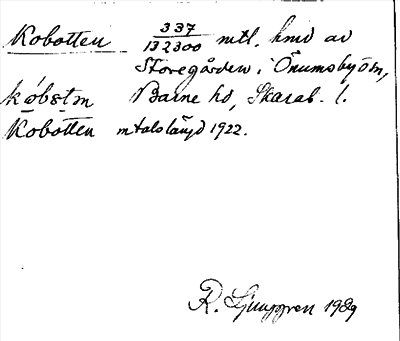 Kobotten 337/132300 mtl. hmd av
Storegården i Önums by o sn,
kǿbɵtn Barne hd, Skarab. l.
Kobotten mtalslängd 1922.
R. Ljunggren 1989